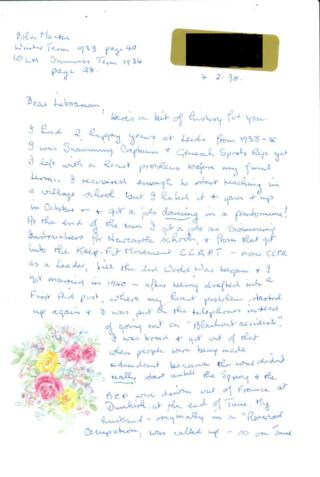 Winter Term 1933 page 40
10 LM Summer Term 1934
page 28.
4. 2. 98.
Dear Librarian,
Here's a bit of history for you
I had 2 happy years at Leeds from 1933-35
I was Swimming Captain & General Sports Rep yet
I left with a heart problem before my final
term. I recovered enough to start teaching in
a village school but I hated it & gave it up
in October - & got a job dancing in a pantomime!
At the end of the run I got a job as Swimming
Instructress for Newcastle schools, & from that got
into the Keep-Fit Movement C.C.R.P.T - now CCPR
as a Leader, till the 2nd World War began & I
got married in 1940 - after being drafted into a
First Aid post, where my heart problem started
up again & I was put on the telephones instead
of going out on "Blackout accidents".
I was bored & got out of that
when people were being made
redundant because the war didn't
really start until the Spring & the
BEF were driven out of France at
Dunkirk, at the end of June. My
husband - originally in a "Reserved
Occupation", was called up - so in June